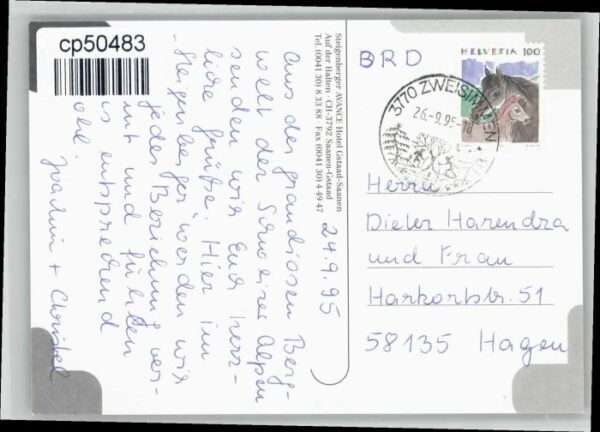 cp50483
Steigenberger AVANCE Hotel Gstaad-Saanen
Auf der Halten · CH-3792 Saanen-Gstaad
Tel. (0041 30) 8 33 88 · Fax (0041 30) 4 49 47
24.9.95
Aus der grandiosen Berg-
welt der Schweizer Alpen
senden wir Euch herz-
liche Grüße. Hier im
"Steigenberger" werden wir
jeder Beziehung ver-
und fühlen
entsprechend
wohl. Joachim + Christel
BRD
HELVETIA 100
3770 ZWEISIMMEN
26.-9.95
Herrn
Dieter Harendza
und Frau
Harkortstr. 51
58135 Hagen